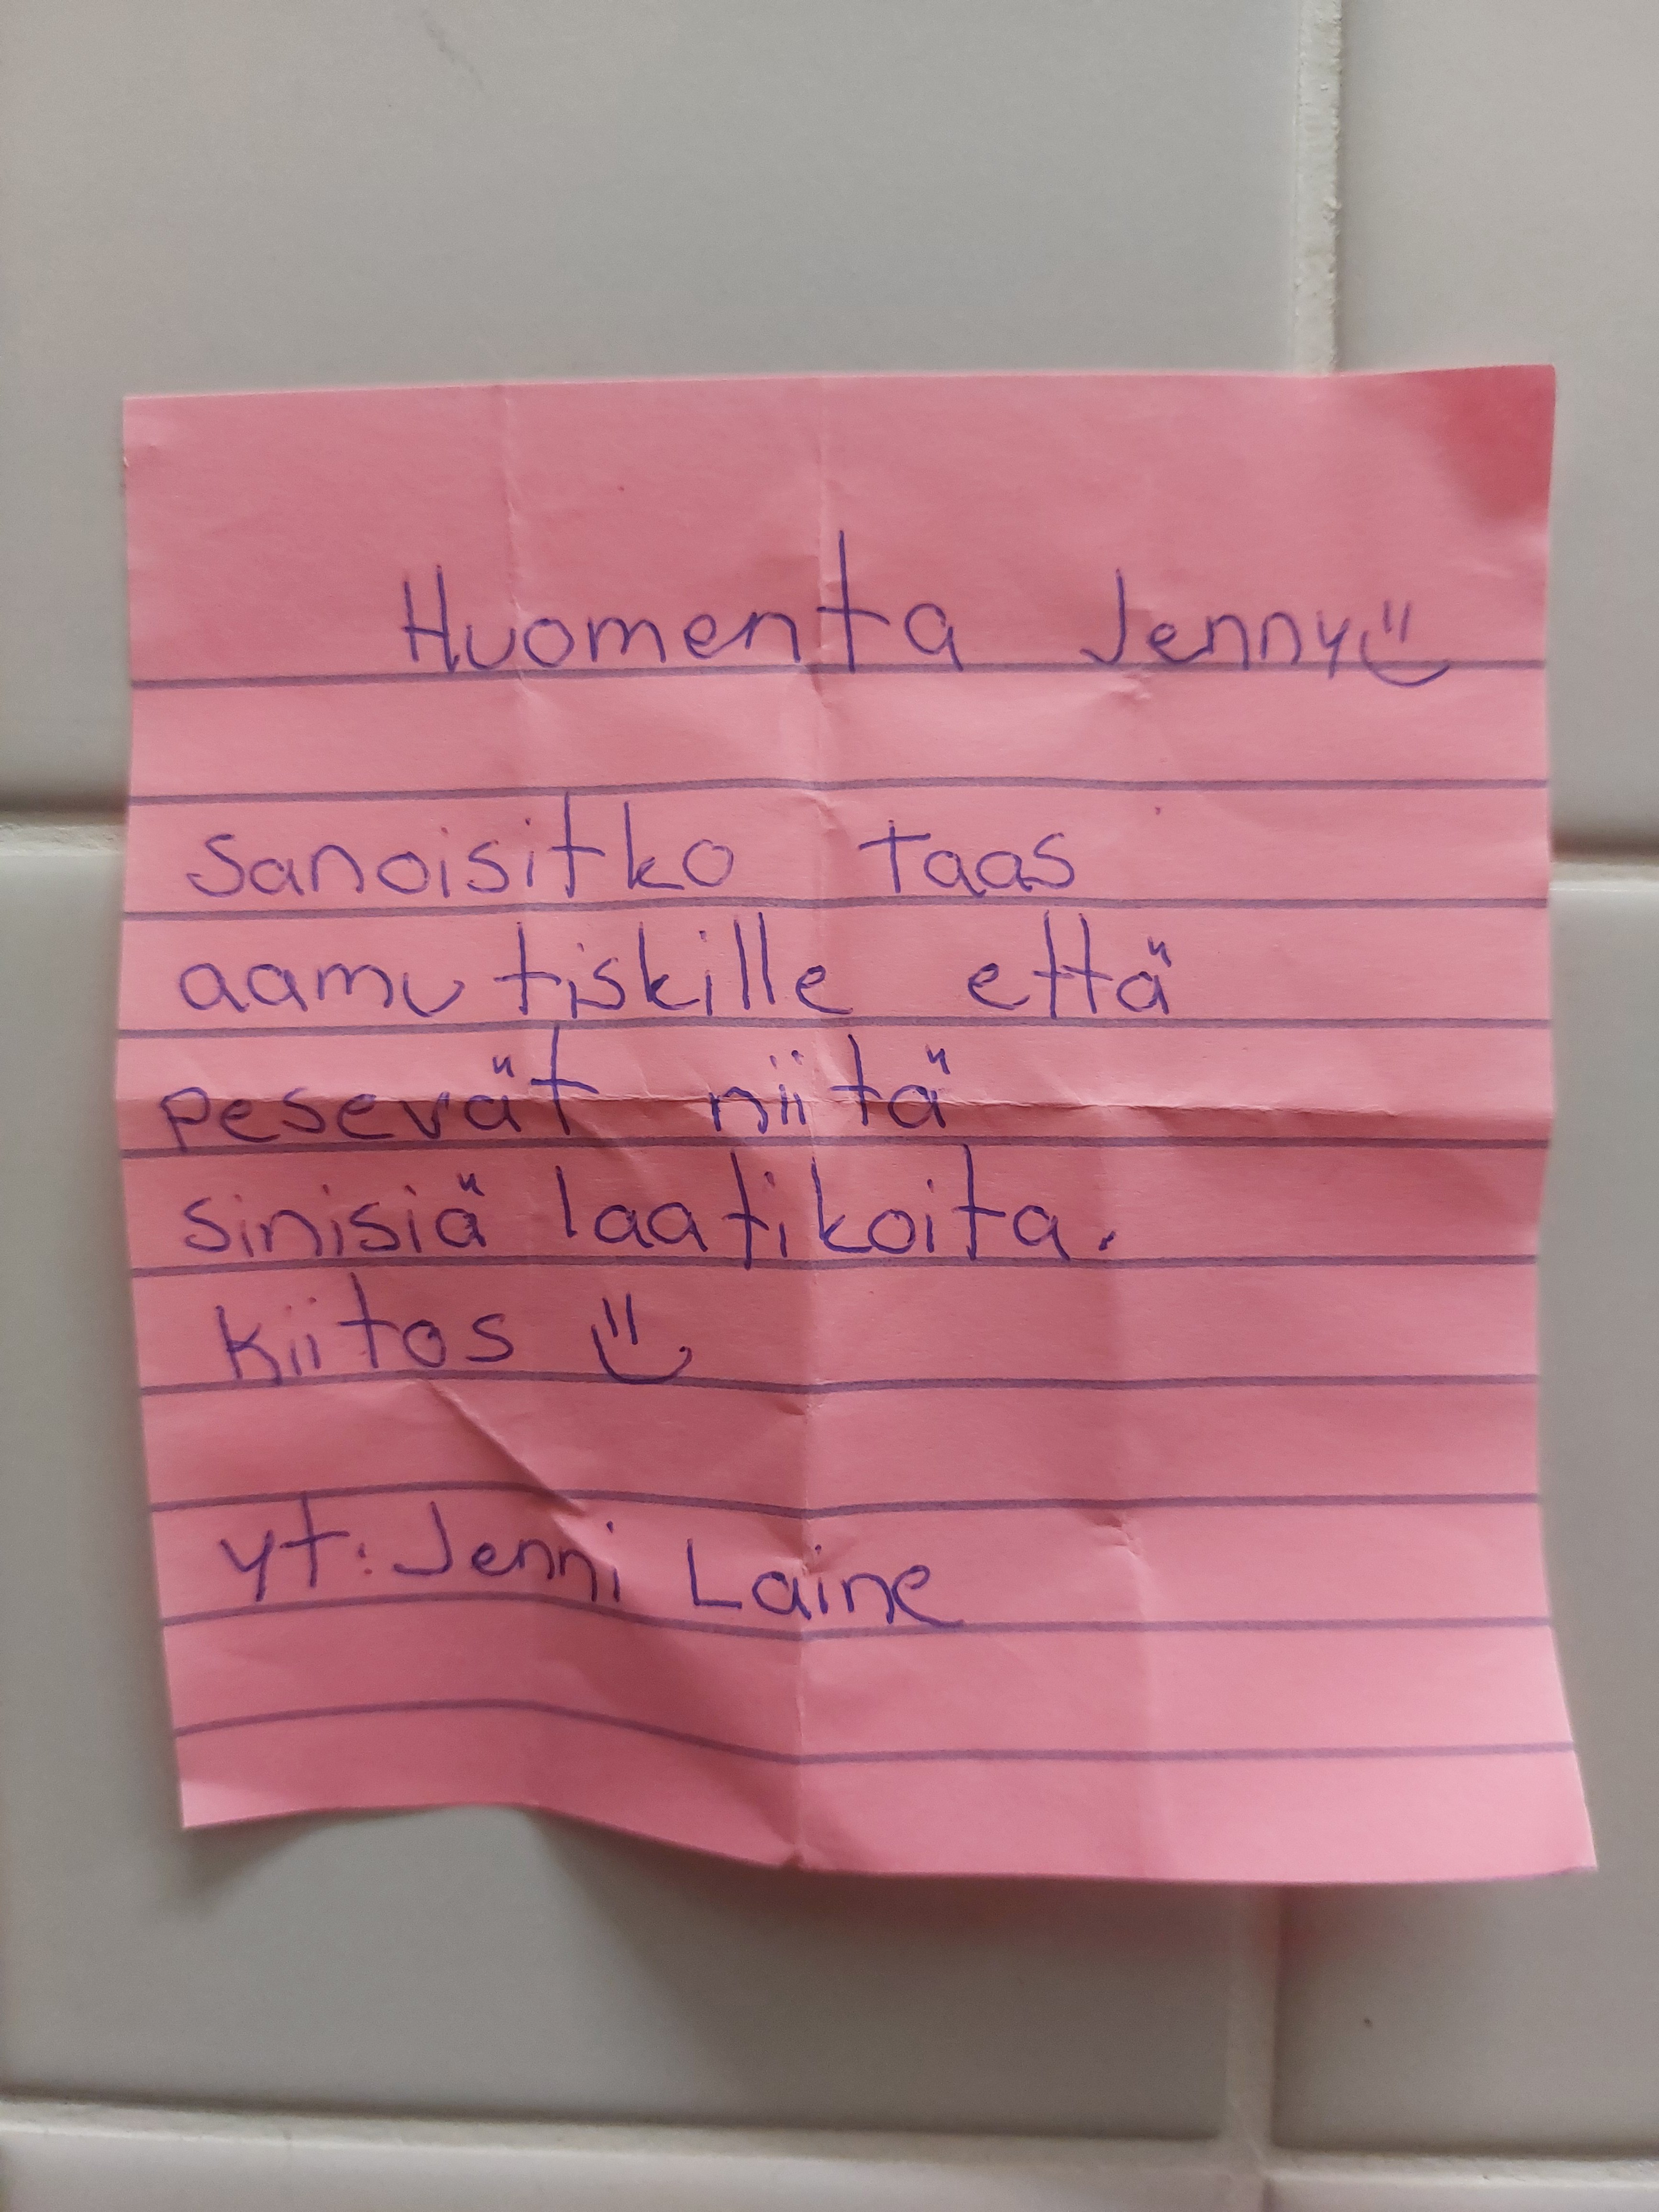 Huomenta Jenny
sanoisitko taas
aamu tiskille että
pesevät niitä
sinisiä laatikoita.
kiitos
yt: Jenni Laine